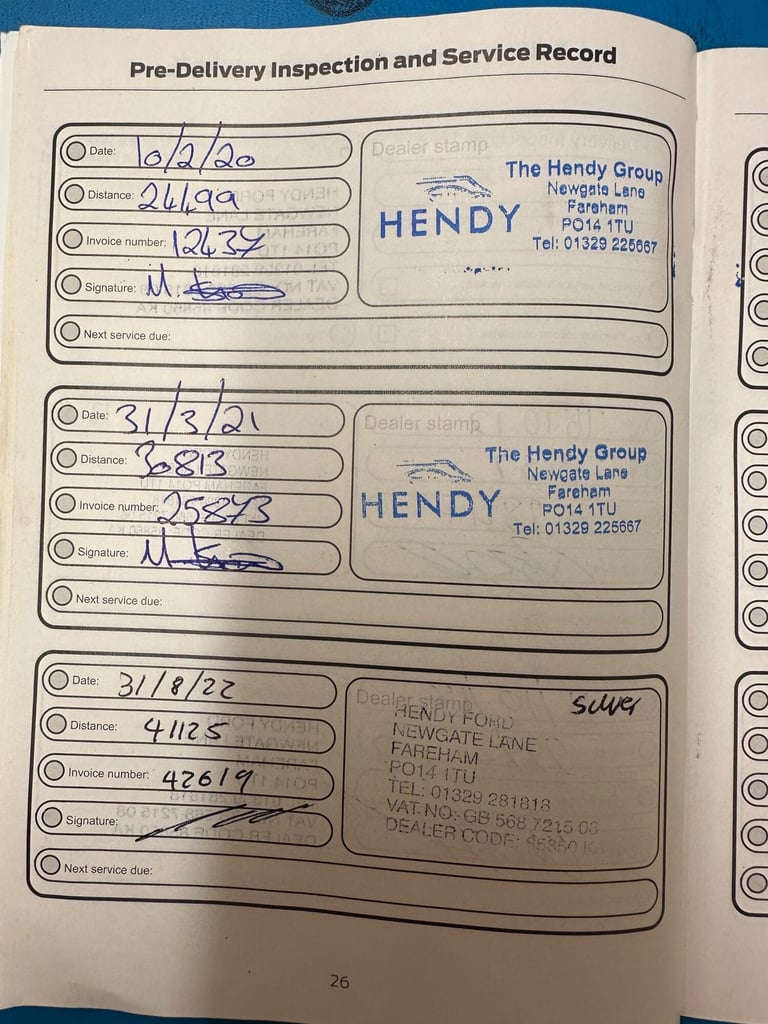 Pre-Delivery Inspection and Service Record
Date: 10/2/20
Distance: 24499
Invoice number: 12437
Signature: M.
Next service due:
Dealer stamp
HENDY
The Hendy Group
Newgate Lane
Fareham
PO14 1TU
Tel: 01329 225667
Date: 31/3/21
Distance: 30813
Invoice number: 25873
Signature: M
Next service due:
Dealer stamp
HENDY
The Hendy Group
Newgate Lane
Fareham
PO14 1TU
Tel: 01329 225667
Date: 31/8/22
Distance: 41125
Invoice number: 42619
Signature:
Next service due:
Dealer stamp
Silver
HENDY FORD
NEWGATE LANE
FAREHAM
PO14 1TU
TEL: 01329 281818
VAT NO: GB 568 7215 08
DEALER CODE:
26